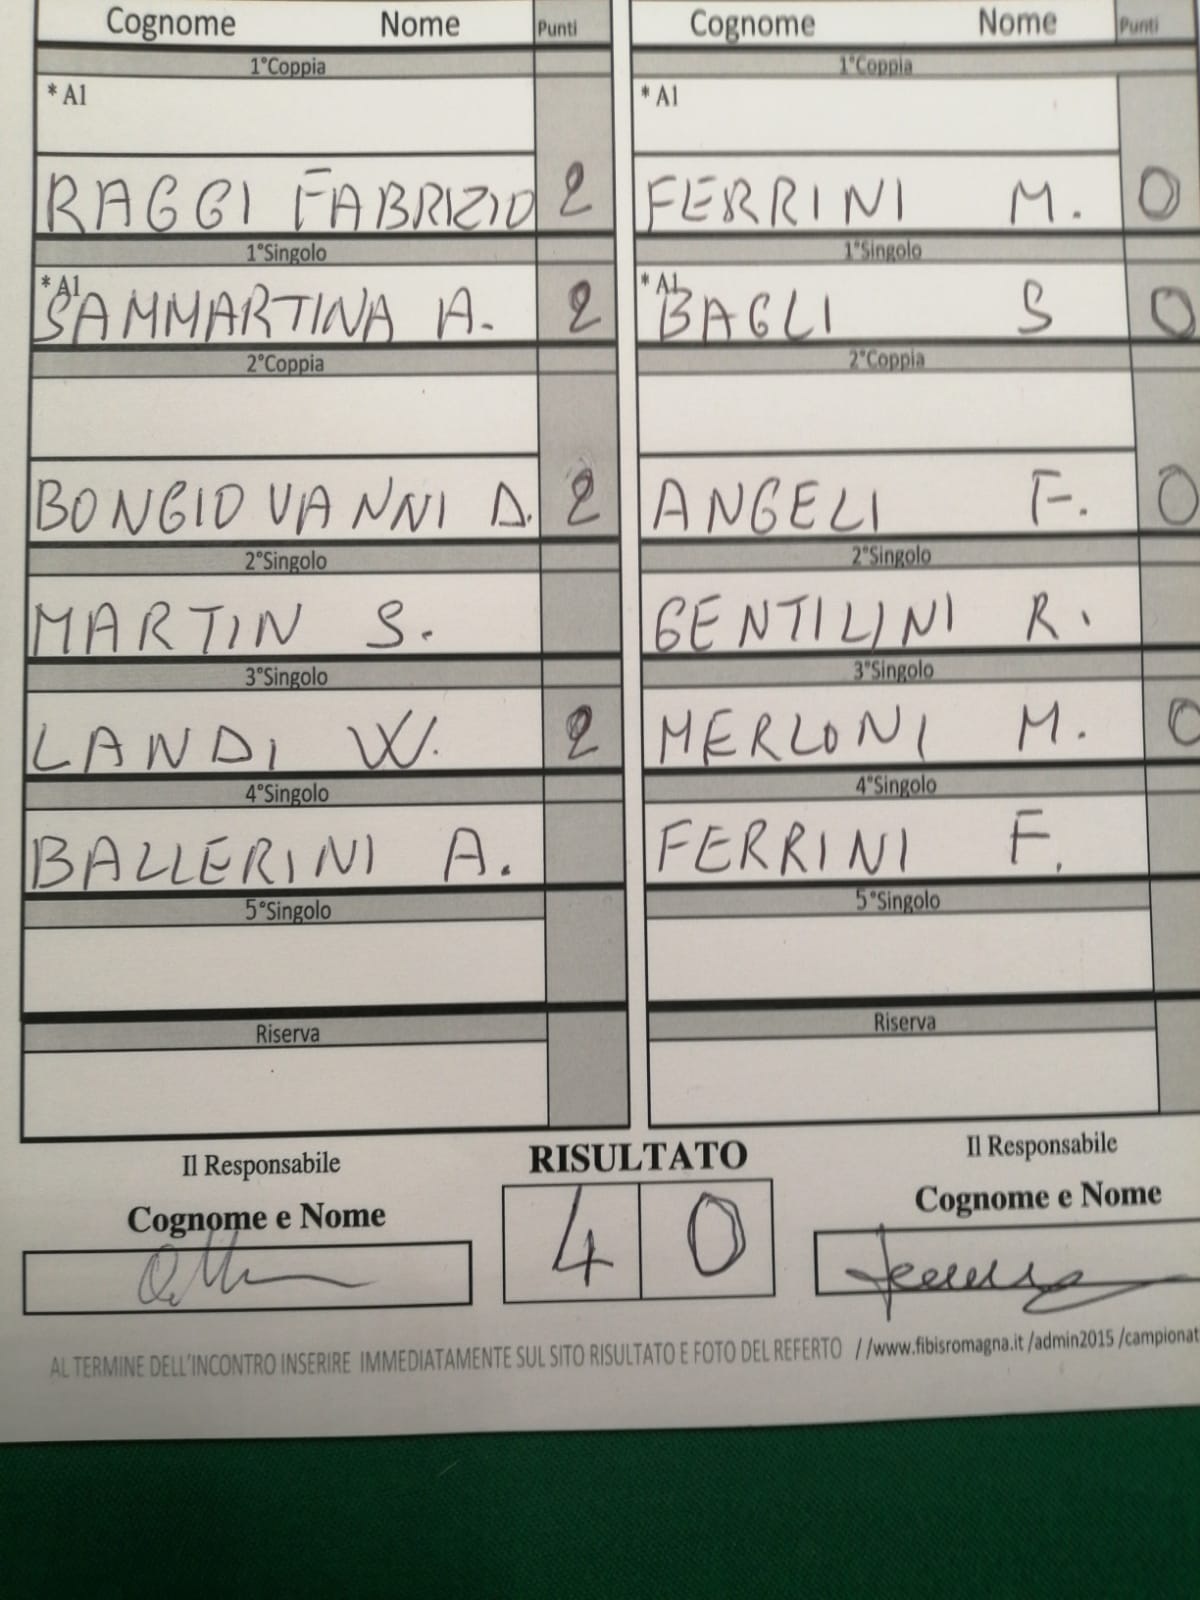 Cognome Nome Punti
1°Coppia
* A1
RAGGI FABRIZIO 2
1°Singolo
* A1
SAMMARTINA A. 2
2°Coppia
BONGIOVANNI D. 2
2°Singolo
MARTIN S.
3°Singolo
LANDI W. 2
4°Singolo
BALLERINI A.
5°Singolo
Riserva
Cognome Nome Punti
1°Coppia
* A1
FERRINI M. 0
1°Singolo
* A1
BAGLI S 0
2°Coppia
ANGELI F. 0
2°Singolo
GENTILINI R.
3°Singolo
MERLONI M. 0
4°Singolo
FERRINI F.
5°Singolo
Riserva
Il Responsabile
Cognome e Nome
RISULTATO
4 0
Il Responsabile
Cognome e Nome
AL TERMINE DELL'INCONTRO INSERIRE IMMEDIATAMENTE SUL SITO RISULTATO E FOTO DEL REFERTO //www.fibisromagna.it /admin2015 /campionat